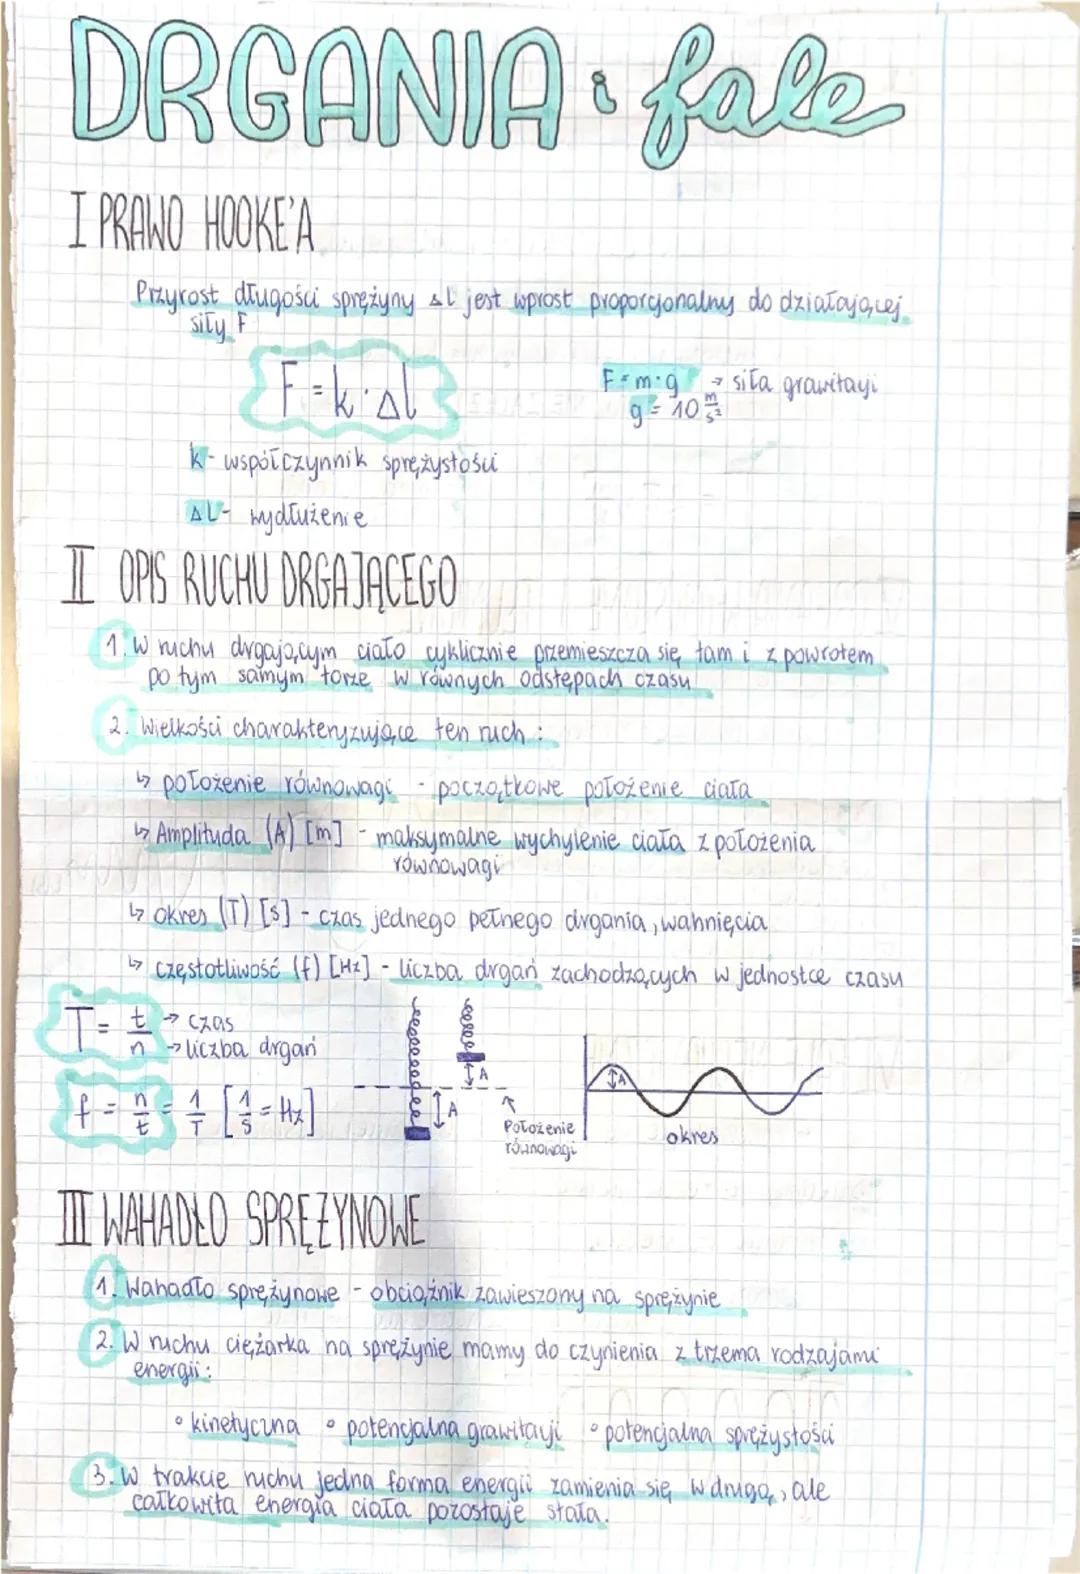 DRGANIA i fale
I PRAWO HOOKE'A
Przyrost długości sprężyny Δl jest wprost proporcjonalny do działającej
siły F
F = k · Δl
F = m · g → siła grawitacji
g = 10 m/s²
k - współczynnik sprężystości
ΔL - wydłużenie
II OPIS RUCHU DRGAJĄCEGO
1. W ruchu drgającym ciało cyklicznie przemieszcza się tam i z powrotem
po tym samym torze w równych odstępach czasu
2. Wielkości charakteryzujące ten ruch :
↳ położenie równowagi - początkowe położenie ciała
↳ Amplituda (A) [m] - maksymalne wychylenie ciała z położenia
równowagi
↳ okres (T) [s] - czas jednego pełnego drgania, wahnięcia
↳ częstotliwość (f) [Hz] - liczba drgań zachodzących w jednostce czasu
T = t/n → czas
→ liczba drgań
f = n/t = 1/T [1/s = Hz]
A
A
Położenie
równowagi
A
okres
III WAHADŁO SPRĘŻYNOWE
1. Wahadło sprężynowe - obciążnik zawieszony na sprężynie
2. W ruchu ciężarka na sprężynie mamy do czynienia z trzema rodzajami
energii :
° kinetyczna ° potencjalna grawitacji ° potencjalna sprężystości
3. W trakcie ruchu jedna forma energii zamienia się w drugą, ale
całkowita energia ciała pozostaje stała.